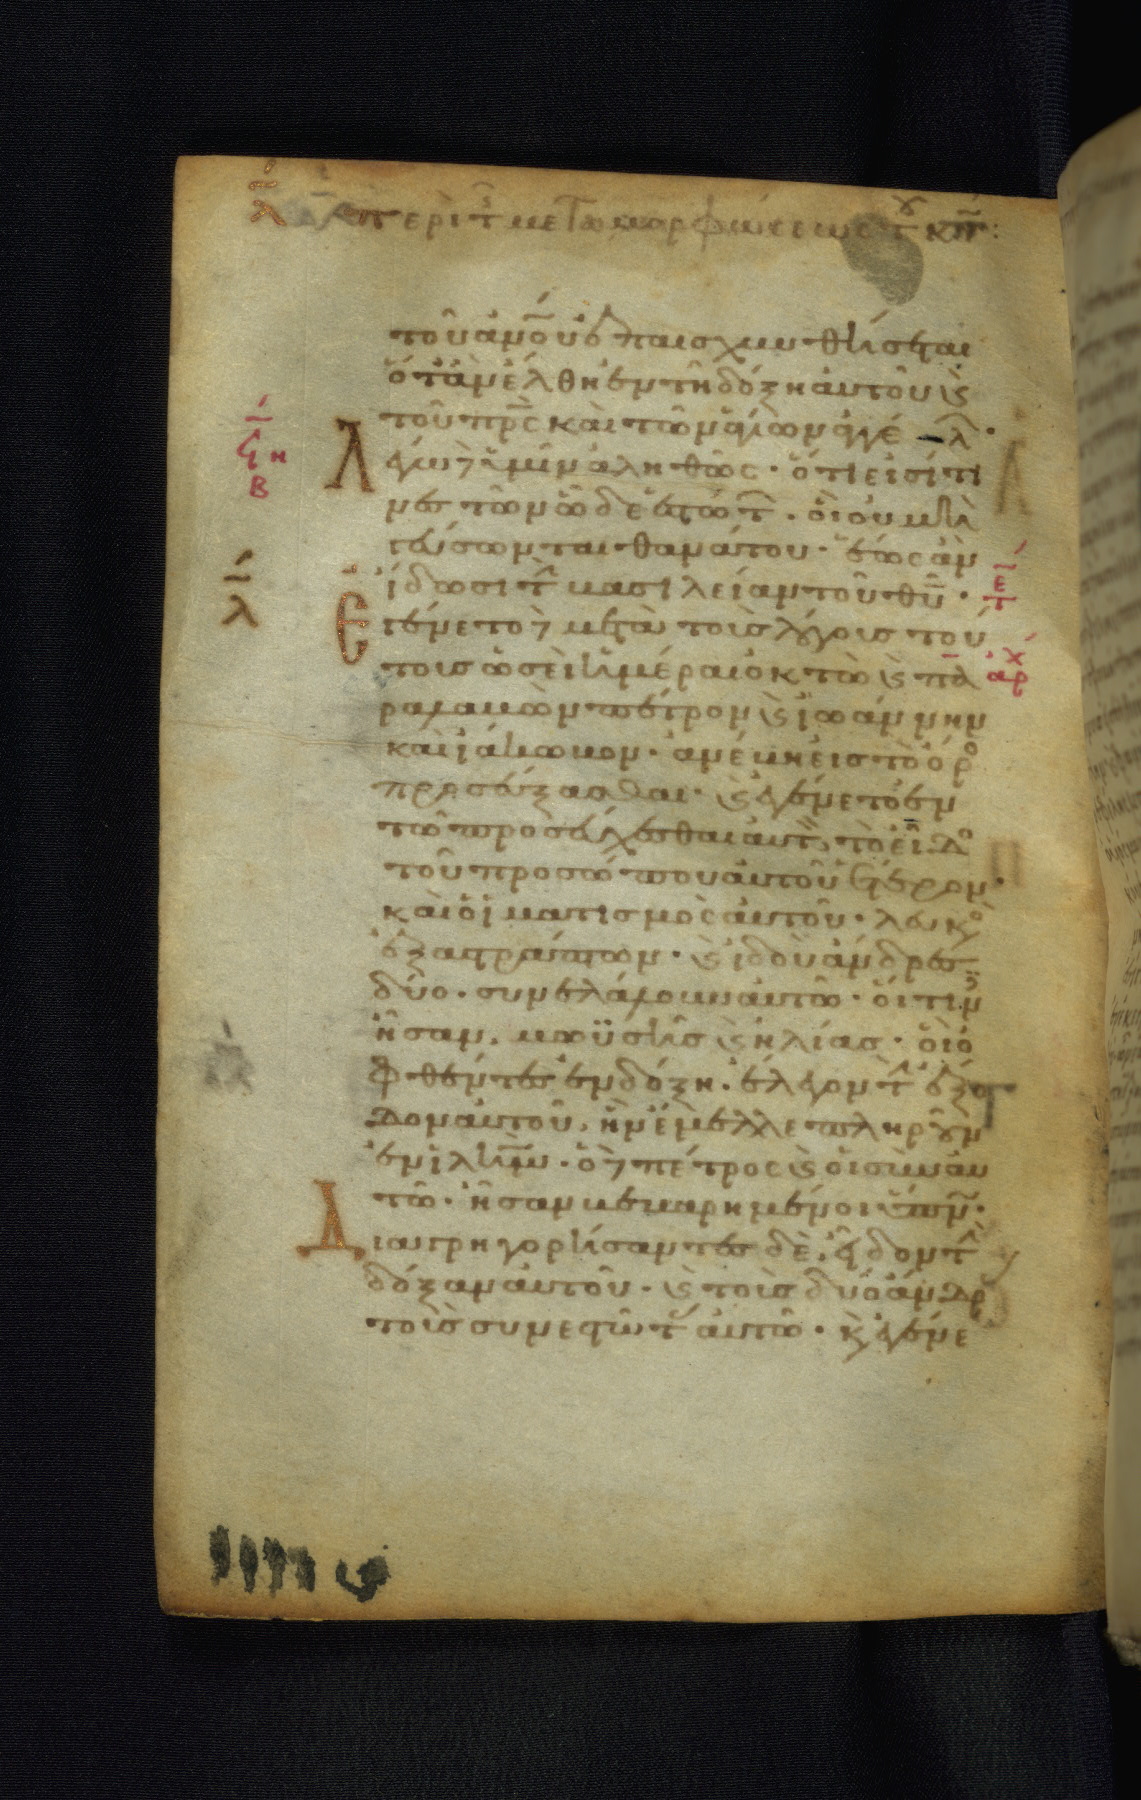 λ περὶ τ μεταμορφώσεως τοῦ κυ:
τοῦ ἀνοῦ ἐπαισχυνθήσεται
ὅταν ἔλθη ἐν τῆ δόξη αὐτοῦ ϗ
τοῦ πρς καὶ τῶν ἁγίων ἀγγέλ.
Λέγω δὲ ὑμῖν ἀληθῶς. ὅτι εἰσί τι
νες τῶν ὧδε ἑστώτ. οἳ οὐ μὴ
γεύσωνται θανάτου. ἕως ἂν
ἴδωσι τ βασιλείαν τοῦ θυ.
Ἐγένετο δὲ μετὰ τοὺς λόγους τού
τους ὡσεὶ ἡμέραι ὀκτὼ ϗ πα
ραλαβὼν πέτρον ϗ ἰωάννην
καὶ ἰάκωβον. ἀνέβη εἰς τὸ ὄρο
προσεύξασθαι. ϗ ἐγένετο ἐν
τῶ προσεύχεσθαι αὐτὸν τὸ εἶδο
τοῦ προσώπου αὐτοῦ ἕτερον.
καὶ ὁ ἱματισμὸς αὐτοῦ. λευκὸ
ἐξαστράπτων. ϗ ἰδοὺ ἄνδρες
δύο. συνελάλουν αὐτῶ. οἵτιν
ἦσαν. μωϋσῆς ϗ ἠλίας. οἳ ὀ
φθέντες ἐν δόξη. ἔλεγον τ ἔξο
δον αὐτοῦ. ἣν ἔμελλε πληροῦν
ἐν ἰλήμ. ὁ δὲ πέτρος ϗ οἱ σὺν αὐ
τῶ. ἦσαν βεβαρημένοι ὕπν.
Διαγρηγορήσαντες δὲ. εἶδον τ
δόξαν αὐτοῦ. ϗ τοὺς δύο ἄνδρ
τοὺς συνεστῶτ αὐτῶ. ϗ ἐγένε